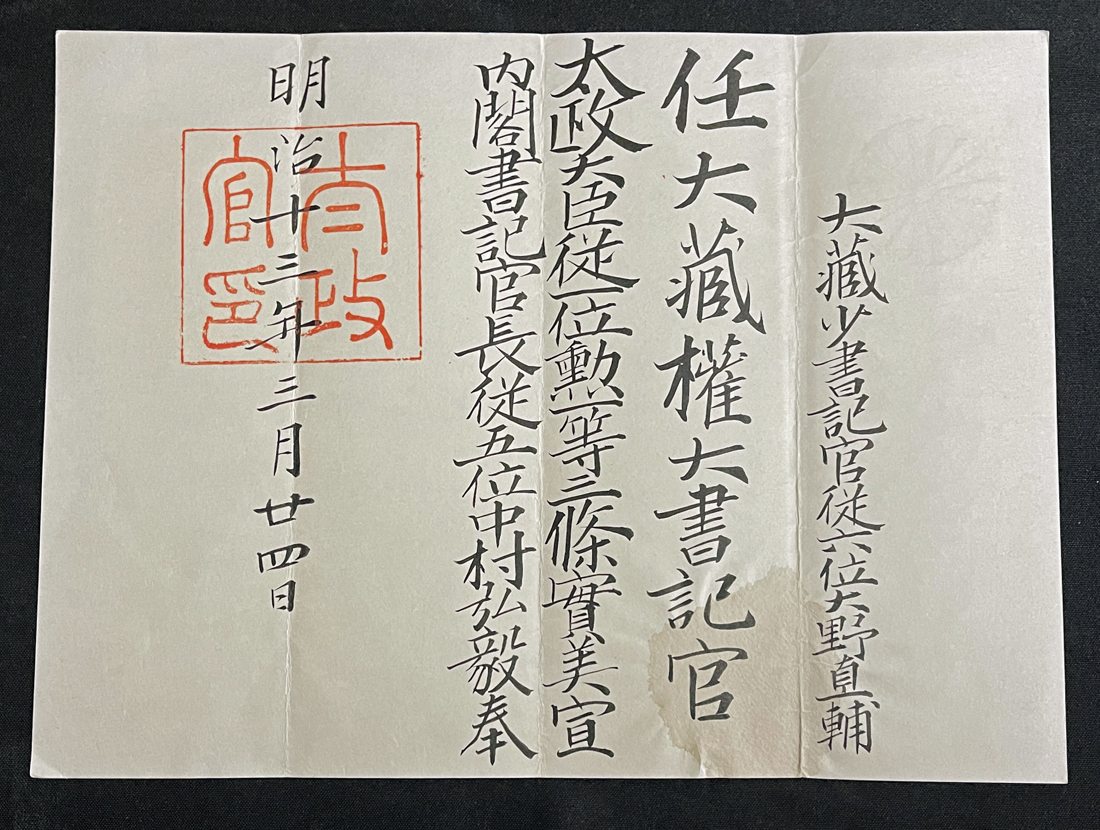 大藏少書記官従六位大野直輔
任大藏權大書記官
太政大臣従一位勲一等三條實美宣
内閣書記官長従五位中村弘毅奉
明治十三年三月廿四日
太政官印